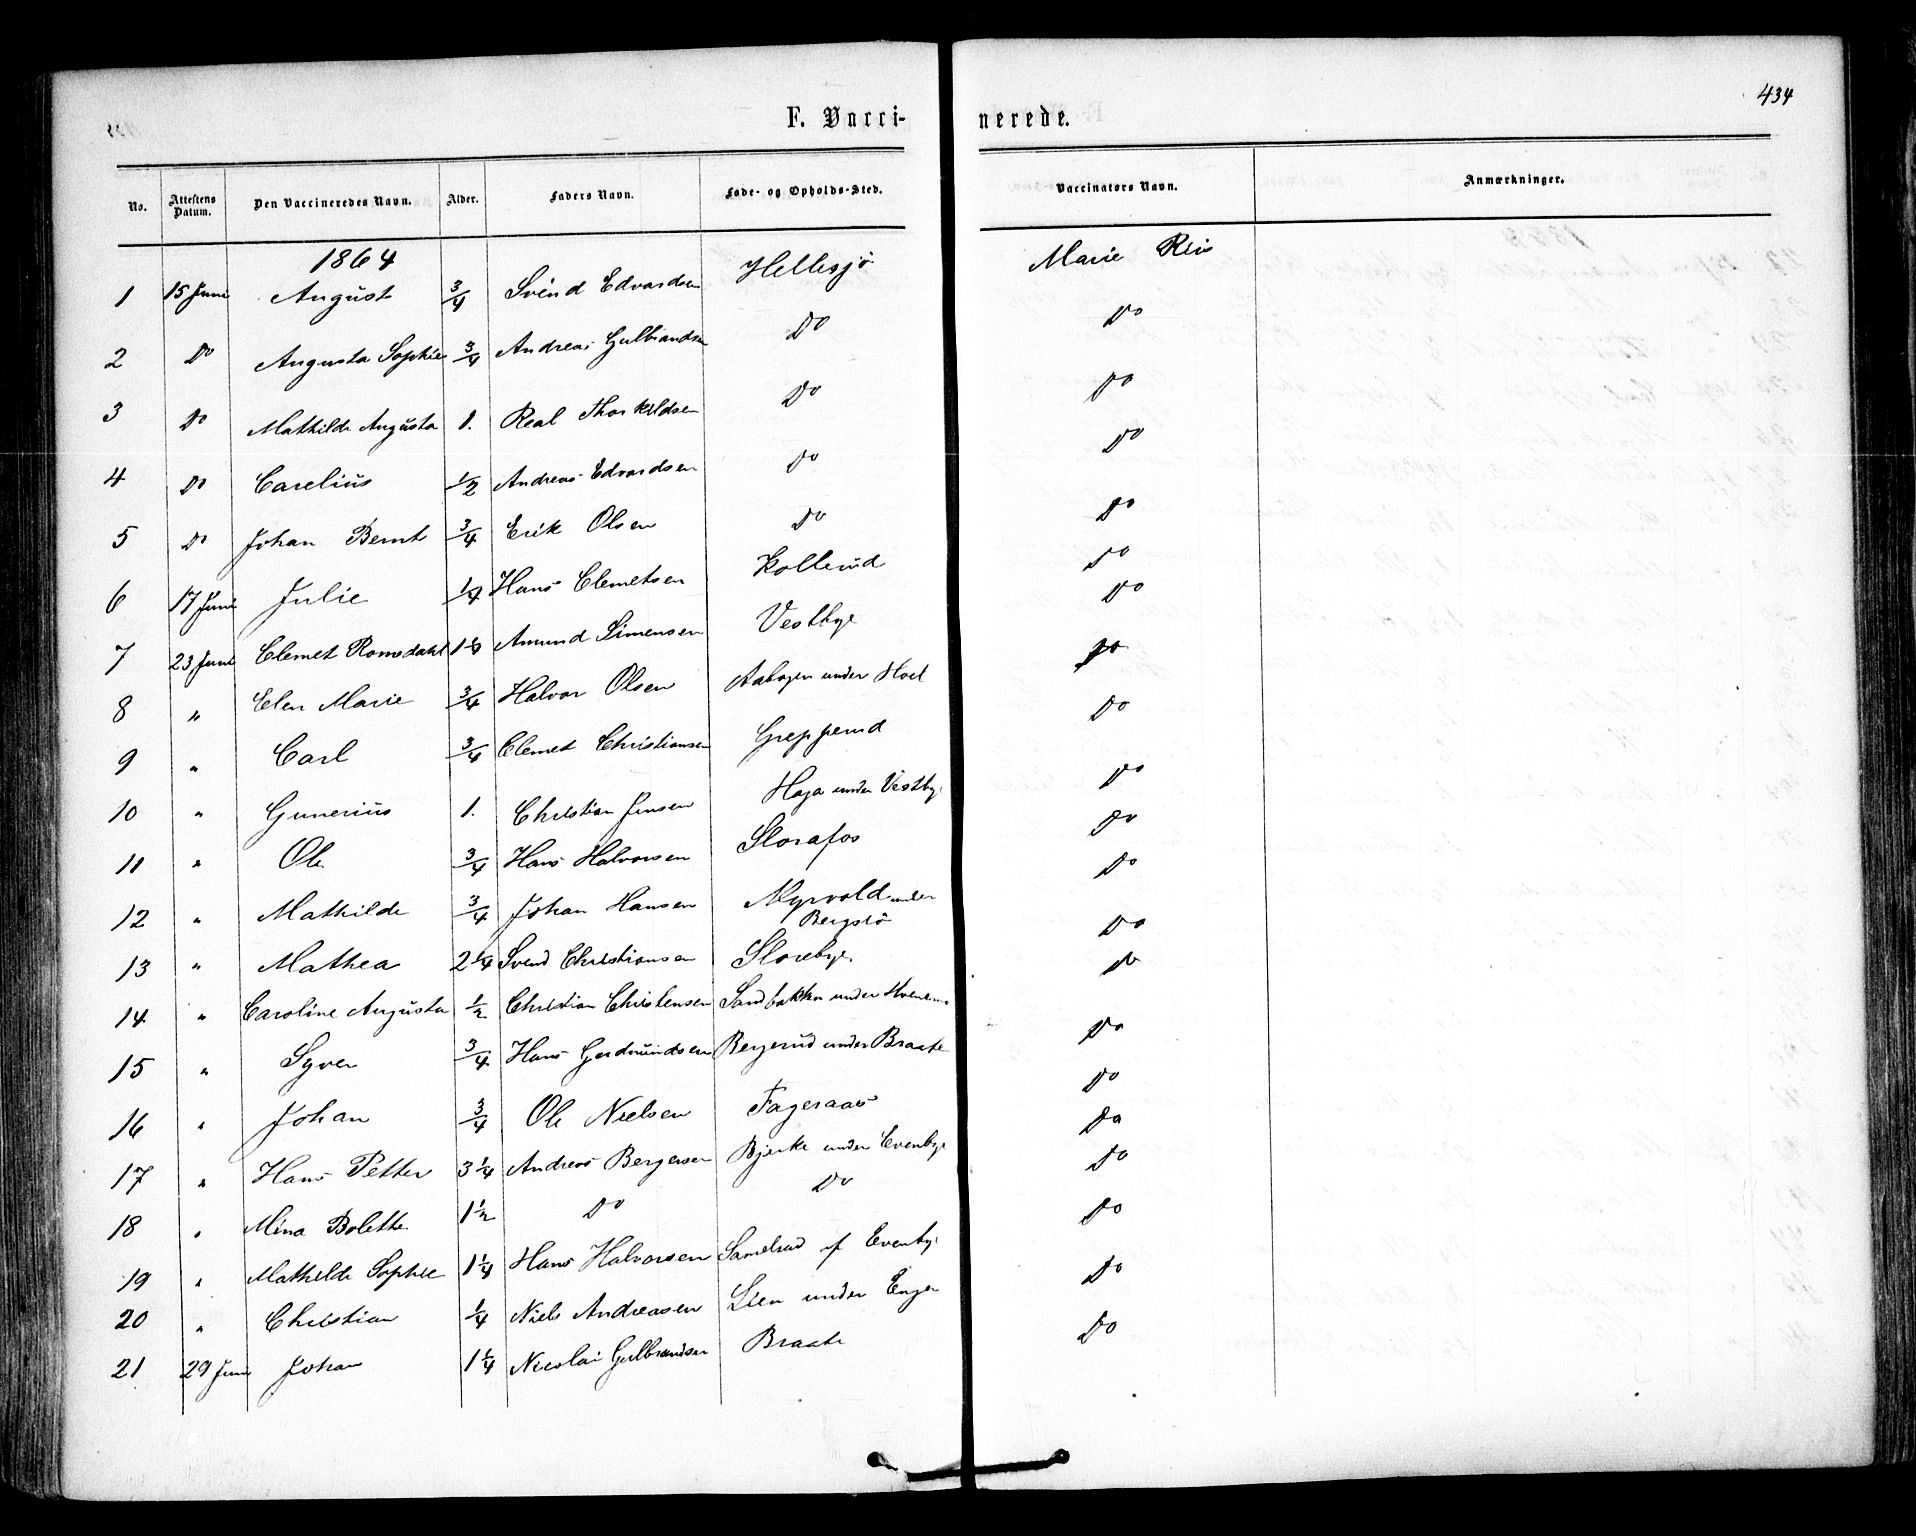 434
F. Vacci- nerede.
No. Attestens Datum. Den Vaccineredes Navn. Alder. Faders Navn. Føde- og Opholds-Sted. Vaccinators Navn. Anmærkninger.
1864
1 15 Juni August 3/4 Svend Edvardsen Hellesjø Marie
2 Do Augusta Sophie 3/4 Andreas Gulbrandsen Do Do
3 Do Mathilde Augusta 1. Real Thorkildsen Do Do
4 Do Carelius 1/2 Andreas Edvardsen Do Do
5 Do Johan Bernt 3/4 Erik Olsen Do Do
6 17 Juni Julie 1/4 Hans Clemetsen Kollerud Do
7 23 Juni Clemet Romsdahl Amund Simensen Vestbye Do
8 " Elen Marie 3/4 Halvor Olsen Aabogen under Hoel Do
9 " Carl 3/4 Clemet Christiansen Grepperud Do
10 " Gunerius 1. Christian Jensen Haga under Vestbye Do
11 " Ole 3/4 Hans Halvorsen Slorafos Do
12 " Mathilde 3/4 Johan Hansen Myrvold under Bergsiø Do
13 " Mathea 2 1/4 Svend Christiansen Slorebye Do
14 " Caroline Augusta 1/2 Christian Christensen Sandbakken under Do
15 " Syver 3/4 Hans Gudmundsen Bergerud under Braate Do
16 " Johan 3/4 Ole Nielsen Fageraas Do
17 " Hans Petter 3 1/4 Andreas Bergersen Bjerke under Evenbye Do
18 " Mina Bolette 1 1/2 Do Do Do
19 " Mathilde Sophie 1 1/4 Hans Halvorsen af Evenbye Do
20 " Christian 1/4 Niels Andreasen Lien under Enger Do
21 29 Juni Johan 1 1/4 Nicolai Gulbrandsen Braate Do